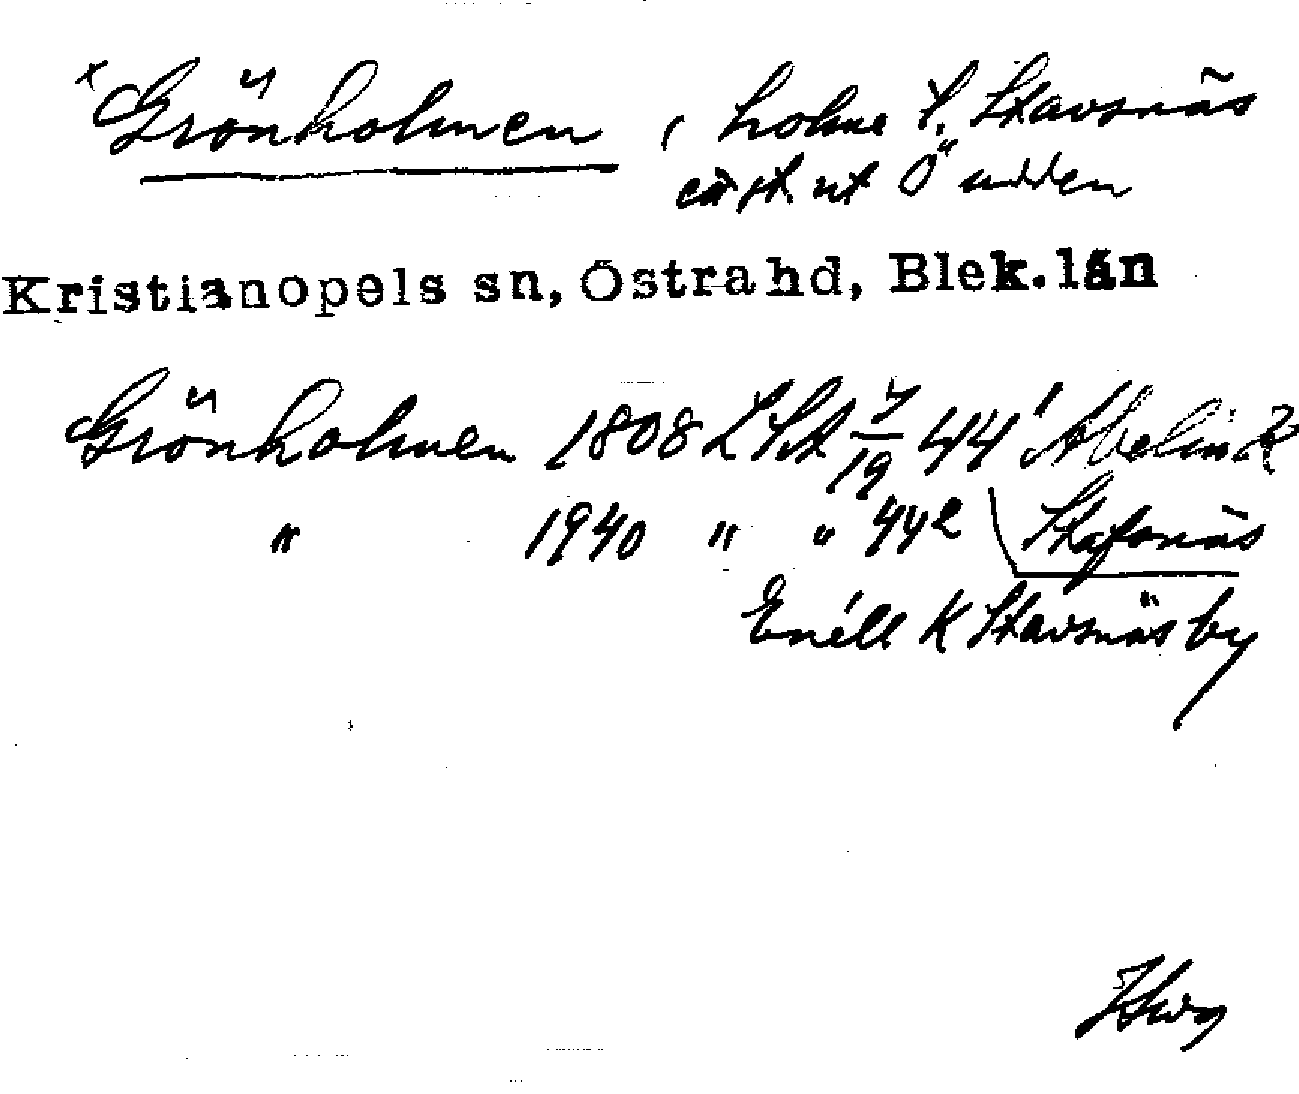 x Grönholmen, holme S. Stavsnäs
st. ut Ö udden
Kristianopels sn, Östra hd, Blek. län
Grönholmen 1808 LSA 7/19 44' Abelin K
" 1940 " " 442 Stafsnäs
Enéll K Stavsnäs by